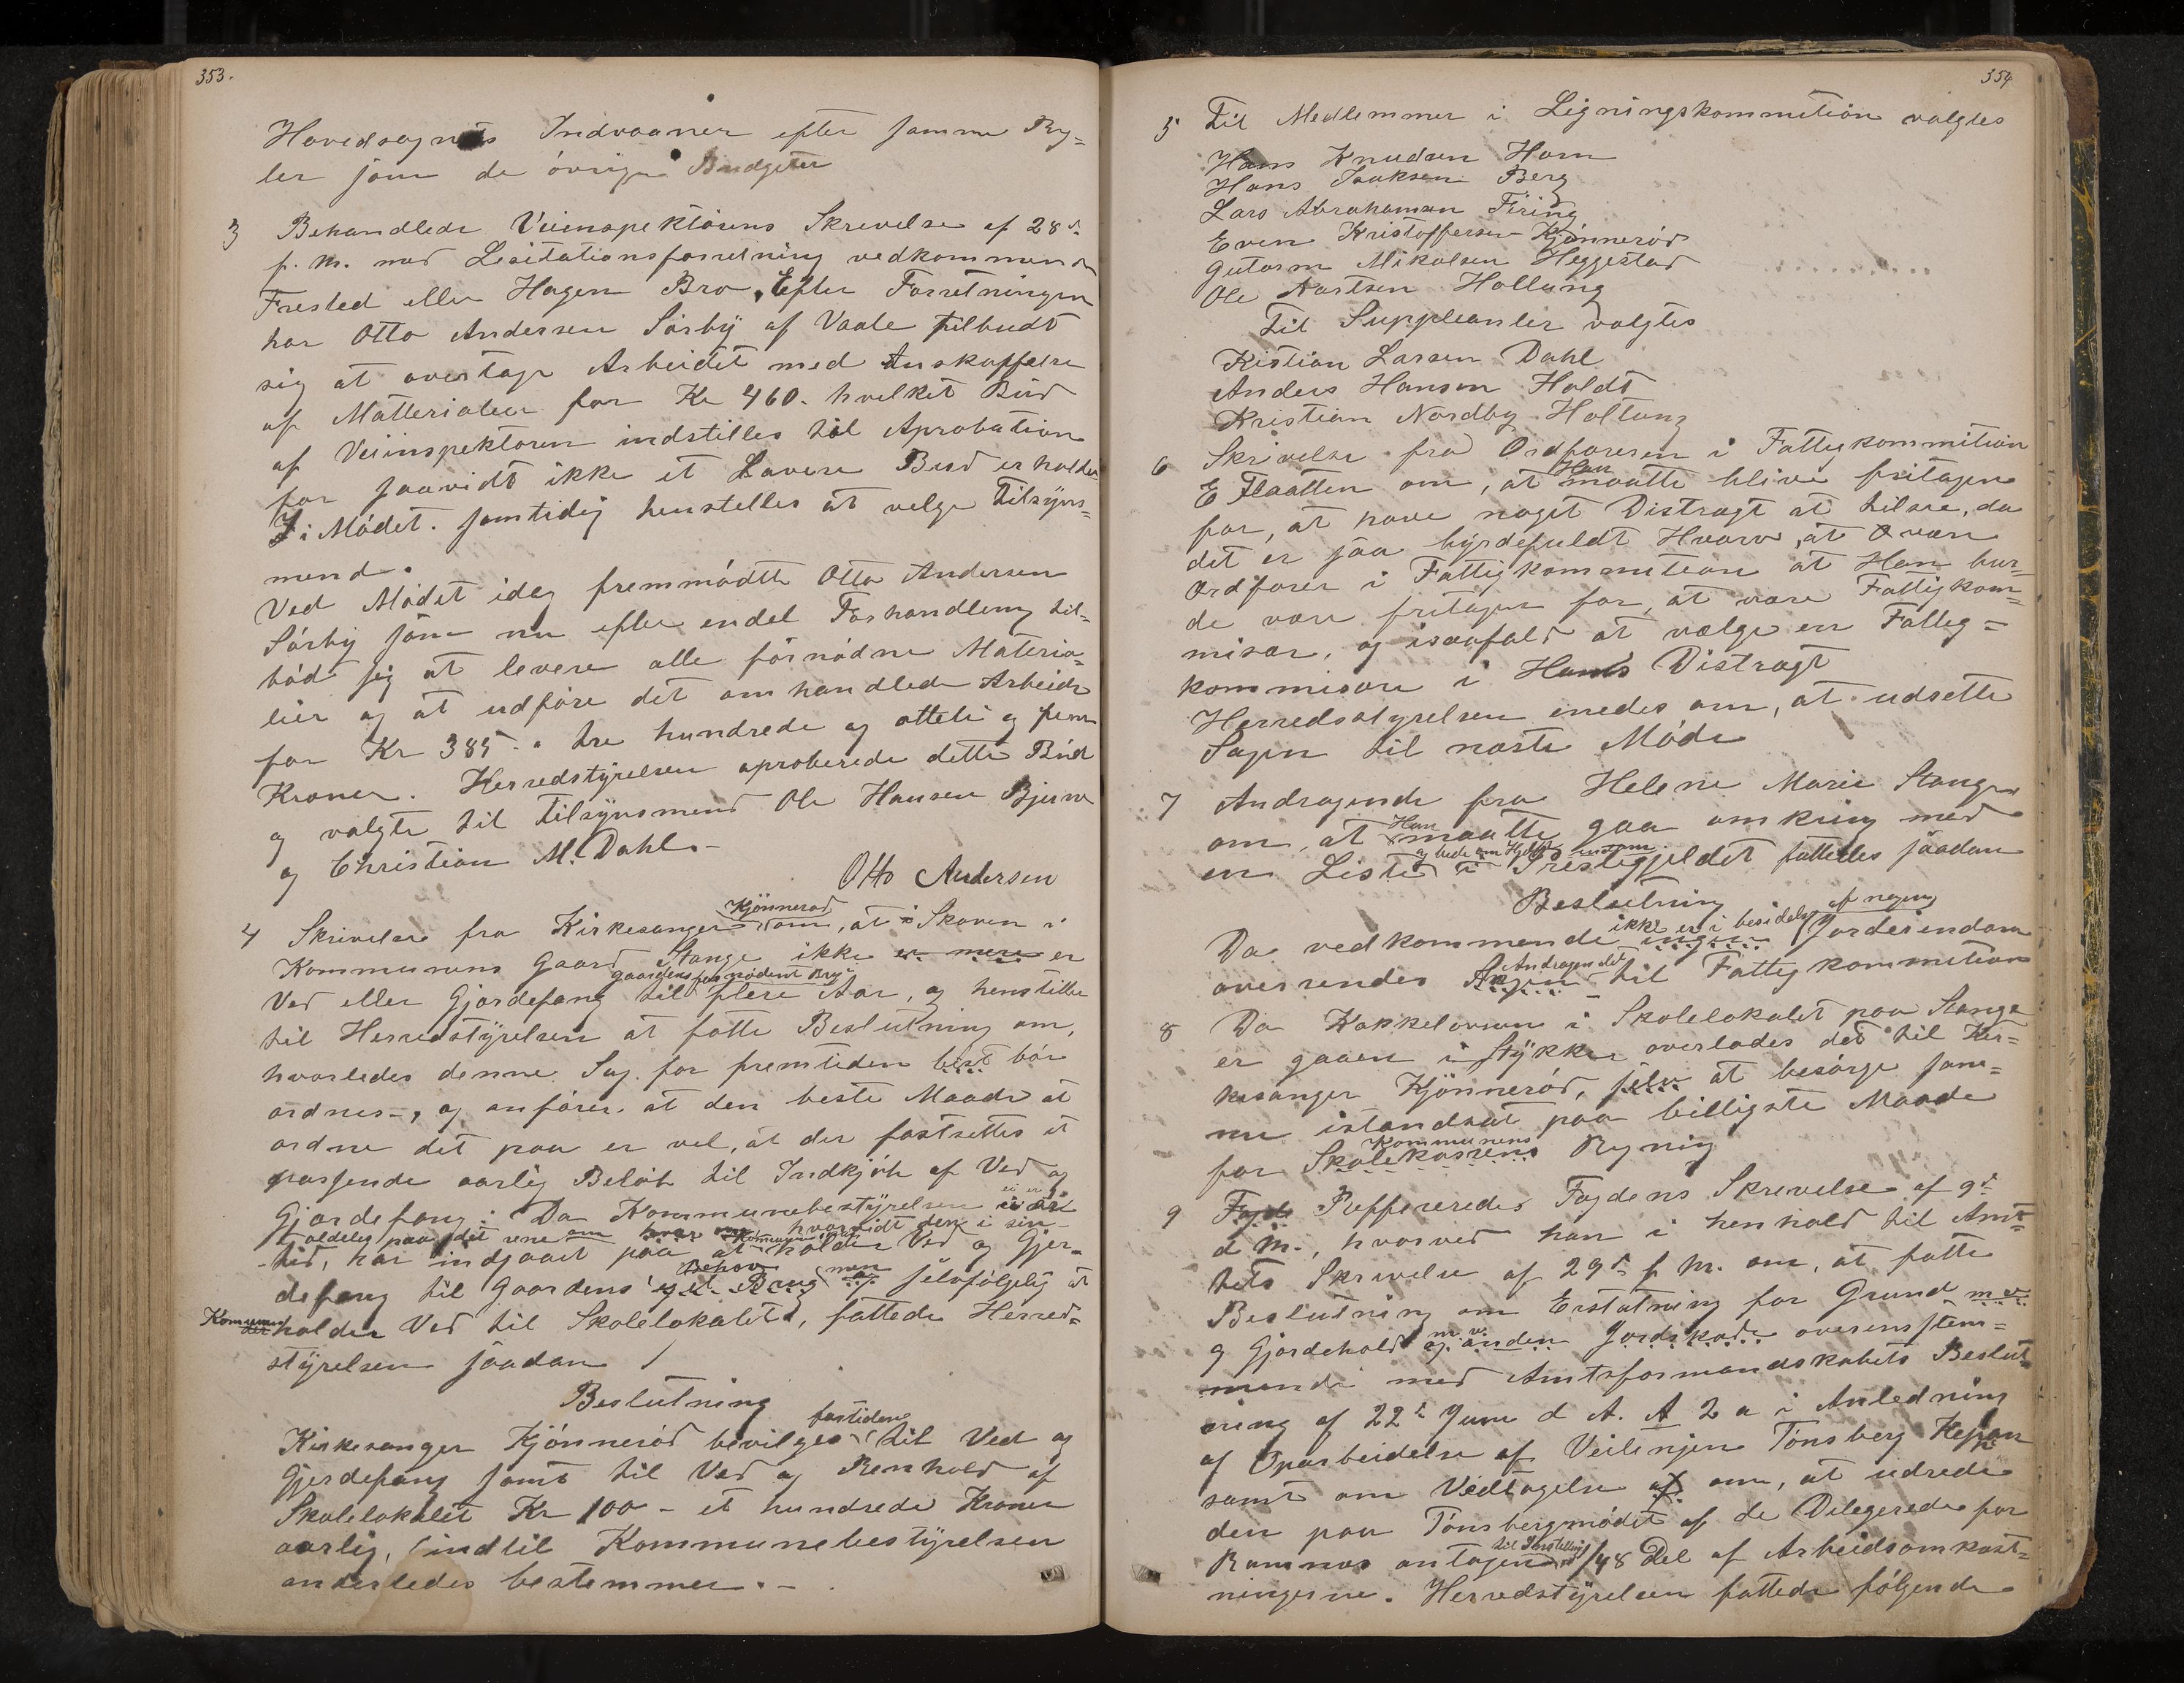 353.
Hovedsognets Indvaaner efter samme Reg=
ler som de óvrige Budgeter
3 Behandlede Veiinspektórens Skrivelse af 28de
f. M. med Lisitationsforretning vedkommende
Frested eller Hagen Bro. Efter Forretningen
har Otto Andersen Sórby af Vaale tilbudt
sig at overtage Arbeidet med Anskaffelse
af Matterialier for Kr 460. hvilket Bud
af Veiinspektoren indstilles til Aprobation
for saavidt ikke et Lavere Bud erholdes
i Módet. samtidig henstilles at velge Tilsyns=
mend.
Ved Módet idag fremmódte Otto Andersen
Sórby som nu efter endel Forhandling til=
bód sig at levere alle fornódne Materia=
lier og at udfóre det omhandlede Arbeide
for Kr 385. tre hundrede og otteti og fem
Kroner. Herredstyrelsen aproberede dette Bud
og valgte til Tilsynsmend Ole Hansen Bjerne
og Christian M. Dahl.-
Otto Andersen
4 Skrivelse fra Kirkesanger Kjónneród om, at i Skoven i
Kommunens Gaard Stange ikke er mere er
Ved eller Gjærdefang til gaardens fornódent Brug flere Aar, og henstiller
til Herredstyrelsen at fatte Beslutning om,
hvorledes denne Sag for fremtiden best bór
ordnes-, og anfórer at den beste Maade at
ordne det paa er vel, at der fastsettes et
passende aarlig Belób til Indkjób af Ved og
Gjærdefang. Da Kommunebestyrelsen ei er
tid, har indgaaet paa at holde Ved og Gjer=
defang til Gaardens Behov men selvfólgelig at
Kommunen holder Ved til Skolelokalet, fattede Herred=
styrelsen saadan
Beslutning
Kirkesanger Kjónneród bevilges fortiden til Ved og
Gjerdefang samt til Ved og Renhold af
Skolelokalet Kr 100 - et hundrede Kroner
aarlig, indtil Kommunebestyrelsen
anderledes bestemmer.-
354
5 Til Medlemmer i Ligningskommitionen valgtes
Hans Knudsen Horn
Hans Isaksen Berg
Lars Abrahamsen Firing
Even Kristoffersen Kjónneród
Gutorm Mikalsen Heggestad
Ole Hollung
Til Suppleanter valgtes
Kistian Larsen Dahl
Anders Hansen Holdt
Kristian Nordby Holtung
6 Skrivelse fra Ordforeren i Fattigkommition
E Flaatten om, at Han maatte blive fritagen
for, at have noget Distragt at tilsee, da
det er saa byrdefuldt Hværv, at være
Ordforer i Fattigkommition at Han bur=
de være fritagen for, at være Fattigkom=
misær, og isaafald at vælge en Fattig=
kommisære i Hans Distragt
Herredsstyrelsen enedes om, at udsette
Sagen til næste Móde
7 Andragende fra Helene Marie Stange
om, at Hun maatte gaa omkring med
en Liste og bede om Hjelp i Prestegjeldet fattedes saadan
Beslutning
Da vedkommende ikke er i besidelse af nogen Jordeiendom
oversendes Andragendet til Fattigkommition
8 Da Kakkelovnen i Skolelokalet paa Stange
er gaaen i Stykker overlades det til Kir=
kesanger Kjónneród, selv at besórge sam=
me istandsat paa billigste Maade
for Kommunens Skolekassens Regning
9 Fogde Refereredes Fogdens Skrivelse af 9de
d M., hvorved han i henhold til Amt=
ets Skrivelse af 29de f M. om, at fatte
Beslutning om Erstatning for Grund m v
og Gjærdehold m.v. og anden Jordskade overensstem=
mende med Amtsformandskabets Beslut=
ning af 22de Juni d A. A 2 a i Anledning
af Oparbeidelse af Veilinjen Tónsberg Kopsan
samt om Vedtagelse af om, at udrede
den paa Tónsbergmódet af de Delegerede for
Ramnes antagen til Indstilling /48 Del af Arbeidsomkost=
ningerne. Herredstyrelsen fattede fólgende